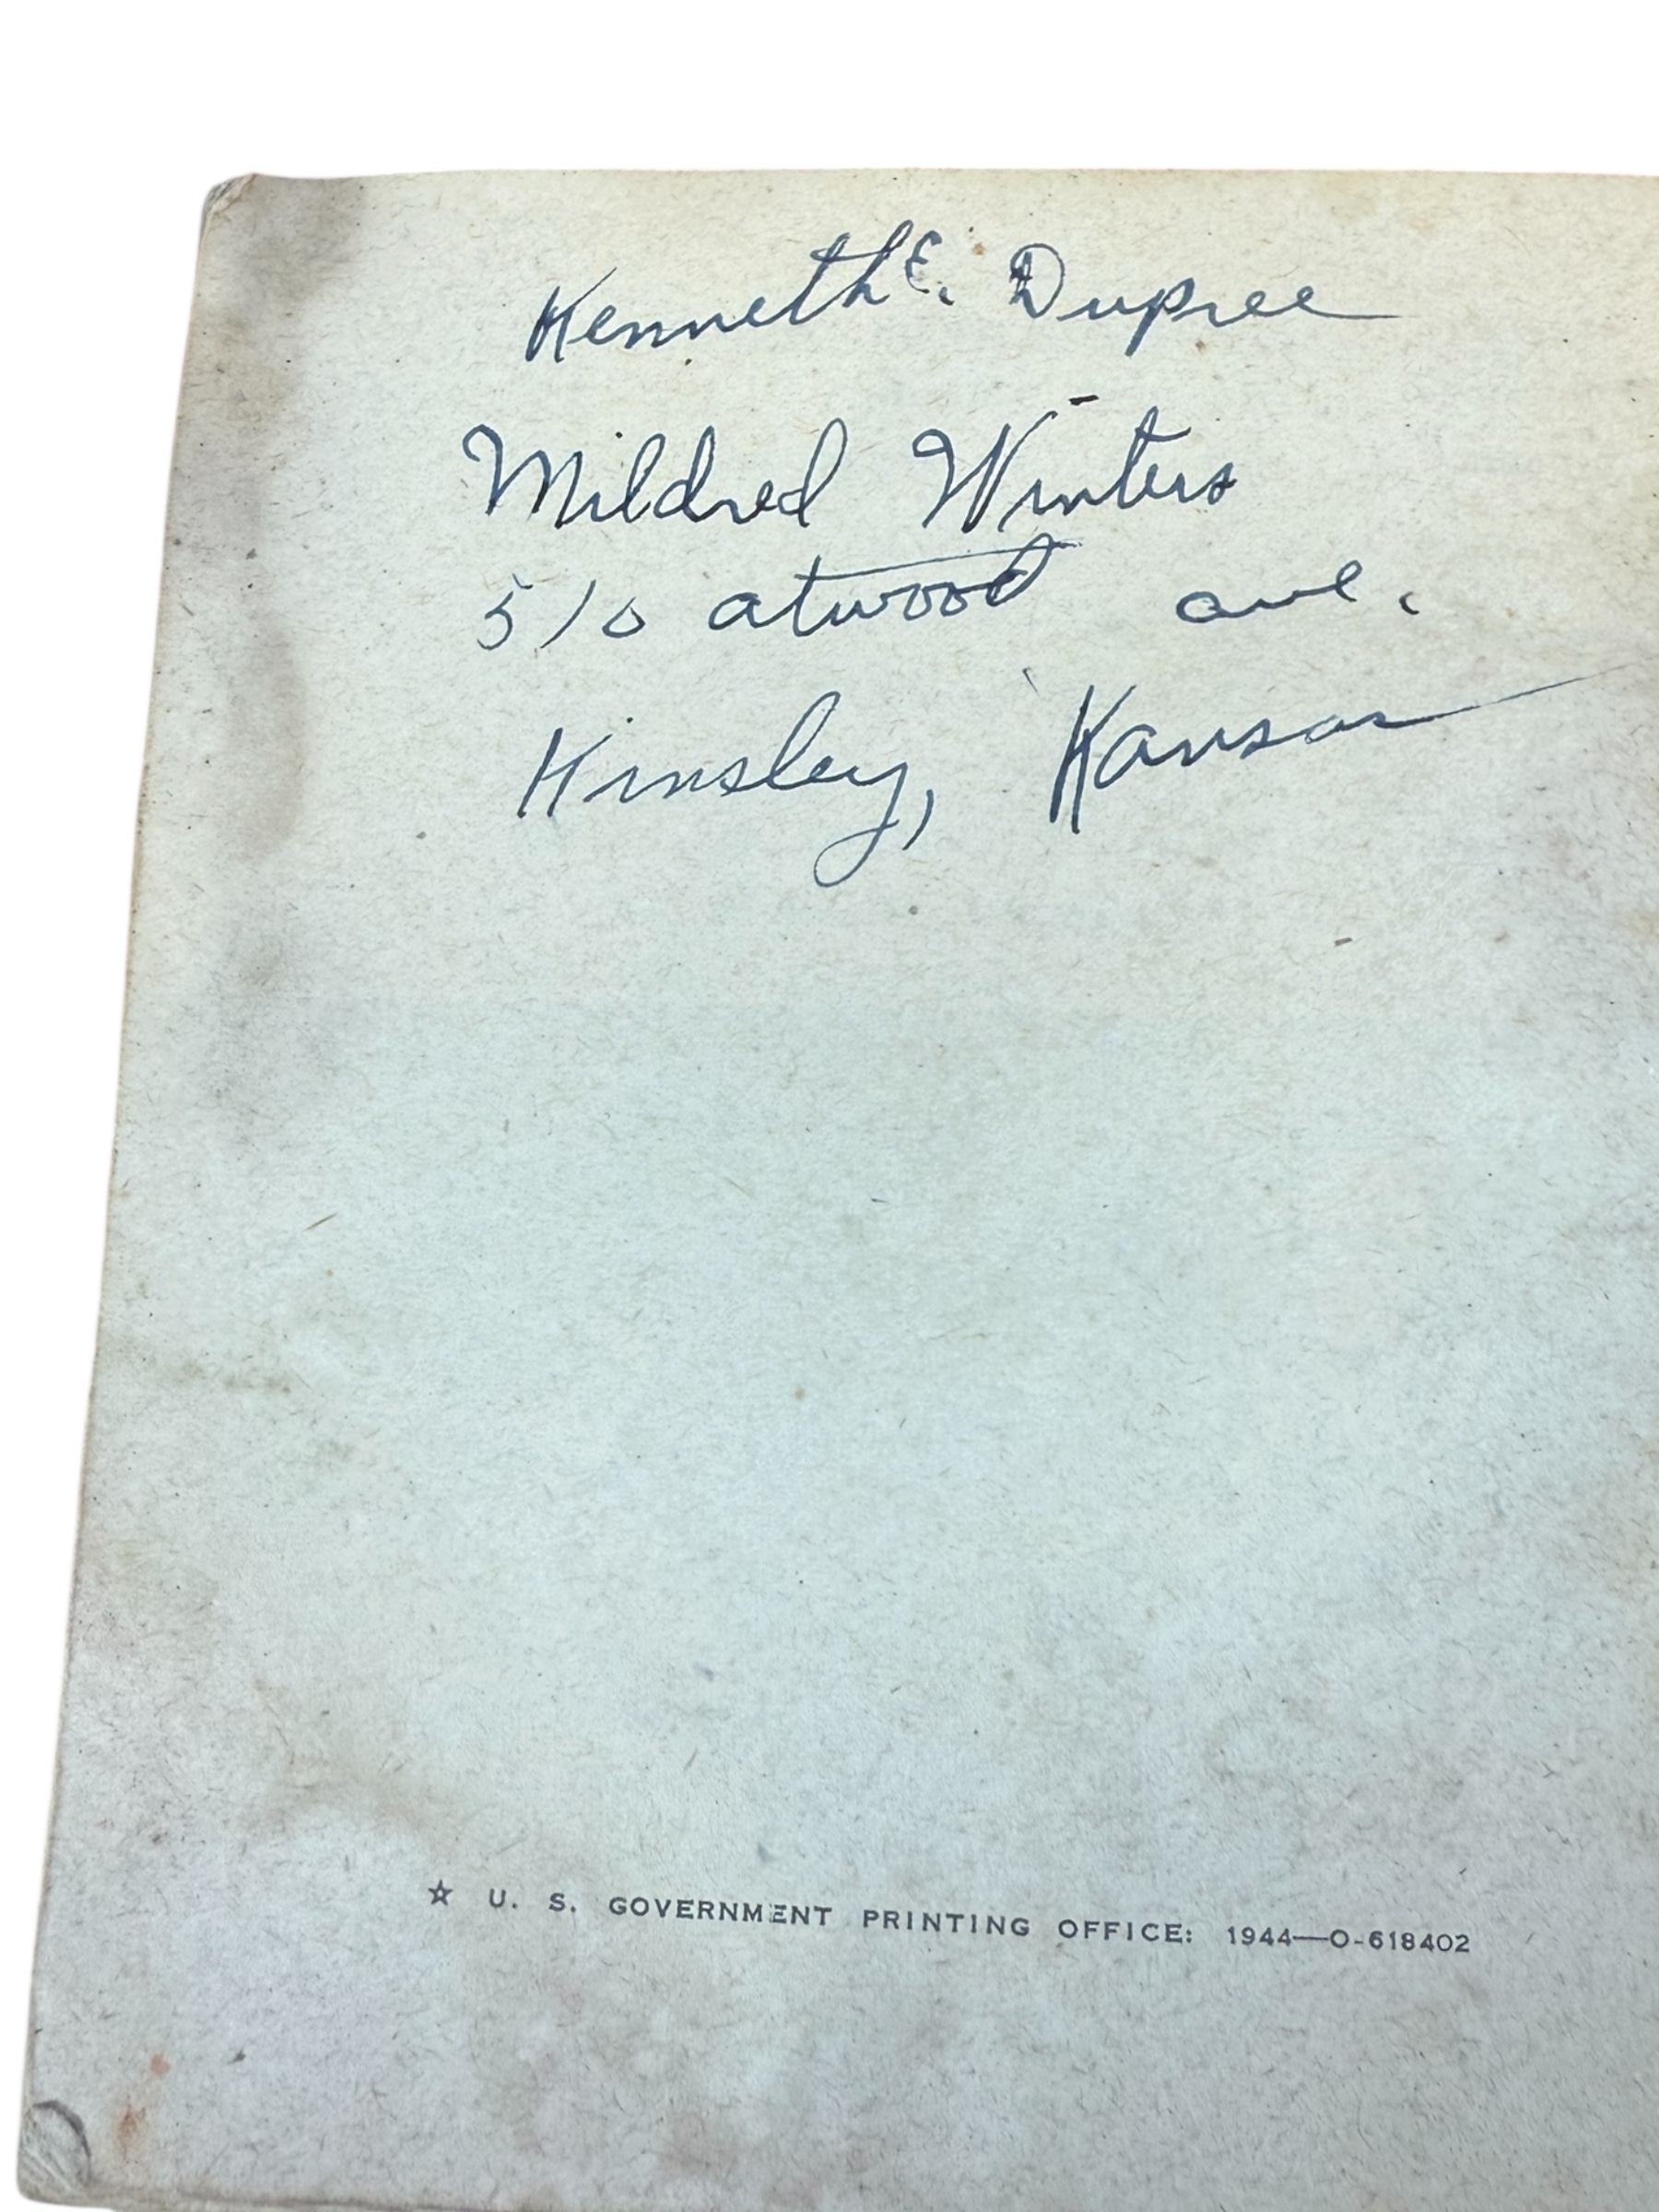 Kenneth E. Dupree
Mildred Winters
510 atwood ave.
Kinsley, Kansas
☆ U. S. GOVERNMENT PRINTING OFFICE: 1944—O-618402